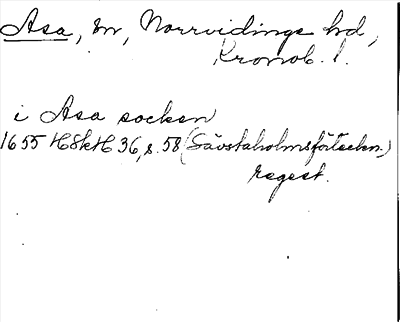 Asa, sn, Norrvidinge hd,
Kronob. l.
i Asa socken
1655 HSkH 36, s. 58 (Sävstaholmsförteckn.)
regest.